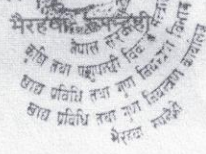 भैरहवा, रुपन्देही
नेपाल सरकार
कृषि तथा पशुपन्छी विकास मन्त्रालय
खाद्य प्रविधि तथा गुण नियन्त्रण विभाग
खाद्य प्रविधि तथा गुण नियन्त्रण कार्यालय
भैरहवा रुपन्देही